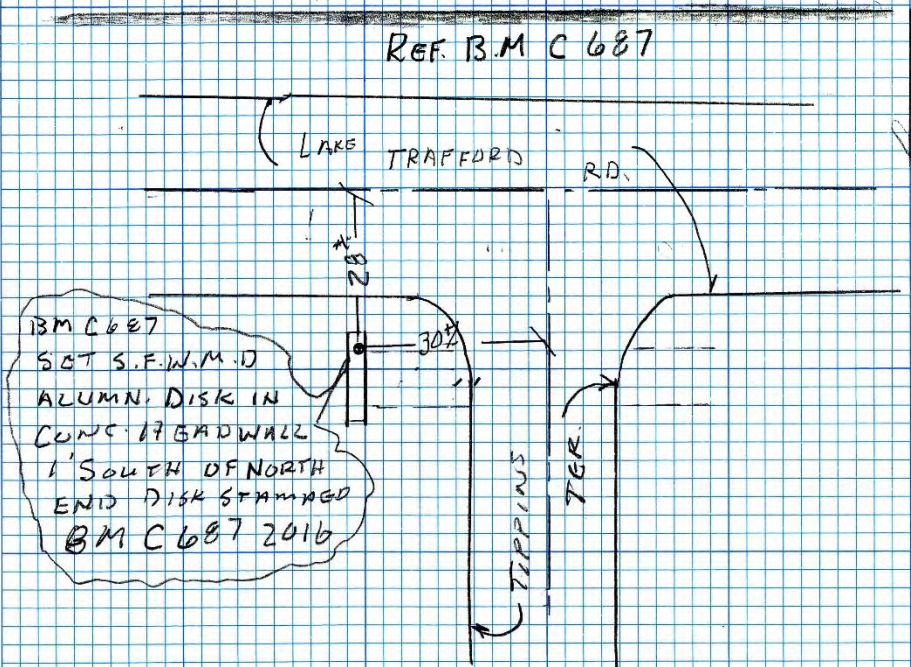 REF. B.M C 687
LAKE TRAFFORD RD.
28'±
30'±
BM C 687
SET S.F.W.M.D
ALUMN. DISK IN
CONC. HEADWALL
1' SOUTH OF NORTH
END DISK STAMPED
BM C 687 2016
TIPPINS TER.